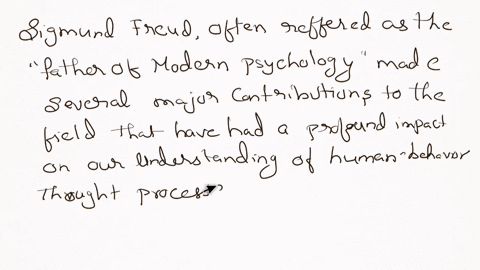 Sigmund Freud, often reffered as the
"father of Modern psychology" made
Several major Contributions to the
field that have had a profound impact
on our Understanding of human-behavor
Thought process